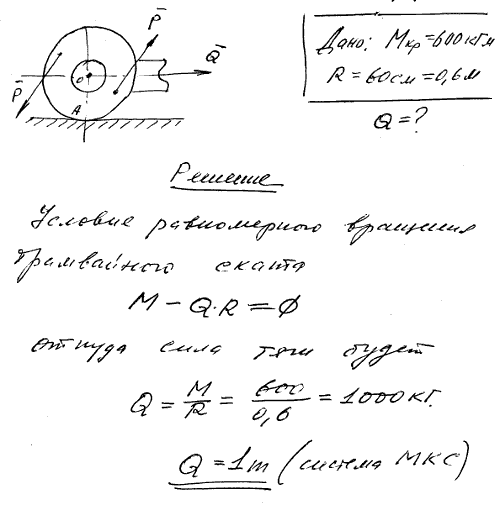 P̄
Q̄
P̄
O
A
Дано: Мкр = 600 кГм
R = 60 см = 0,6 м
Q = ?
Решение
Условие равномерного вращения
трамвайного ската
M − Q·R = 0
откуда сила тяги будет
Q = M/R = 600/0,6 = 1000 кг.
Q = 1т (система МКС)